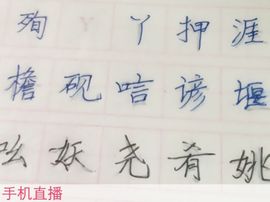 殉 丫 丫 押 涯
檐 砚 唁 谚 堰
吆 妖 尧 肴 姚
手机直播